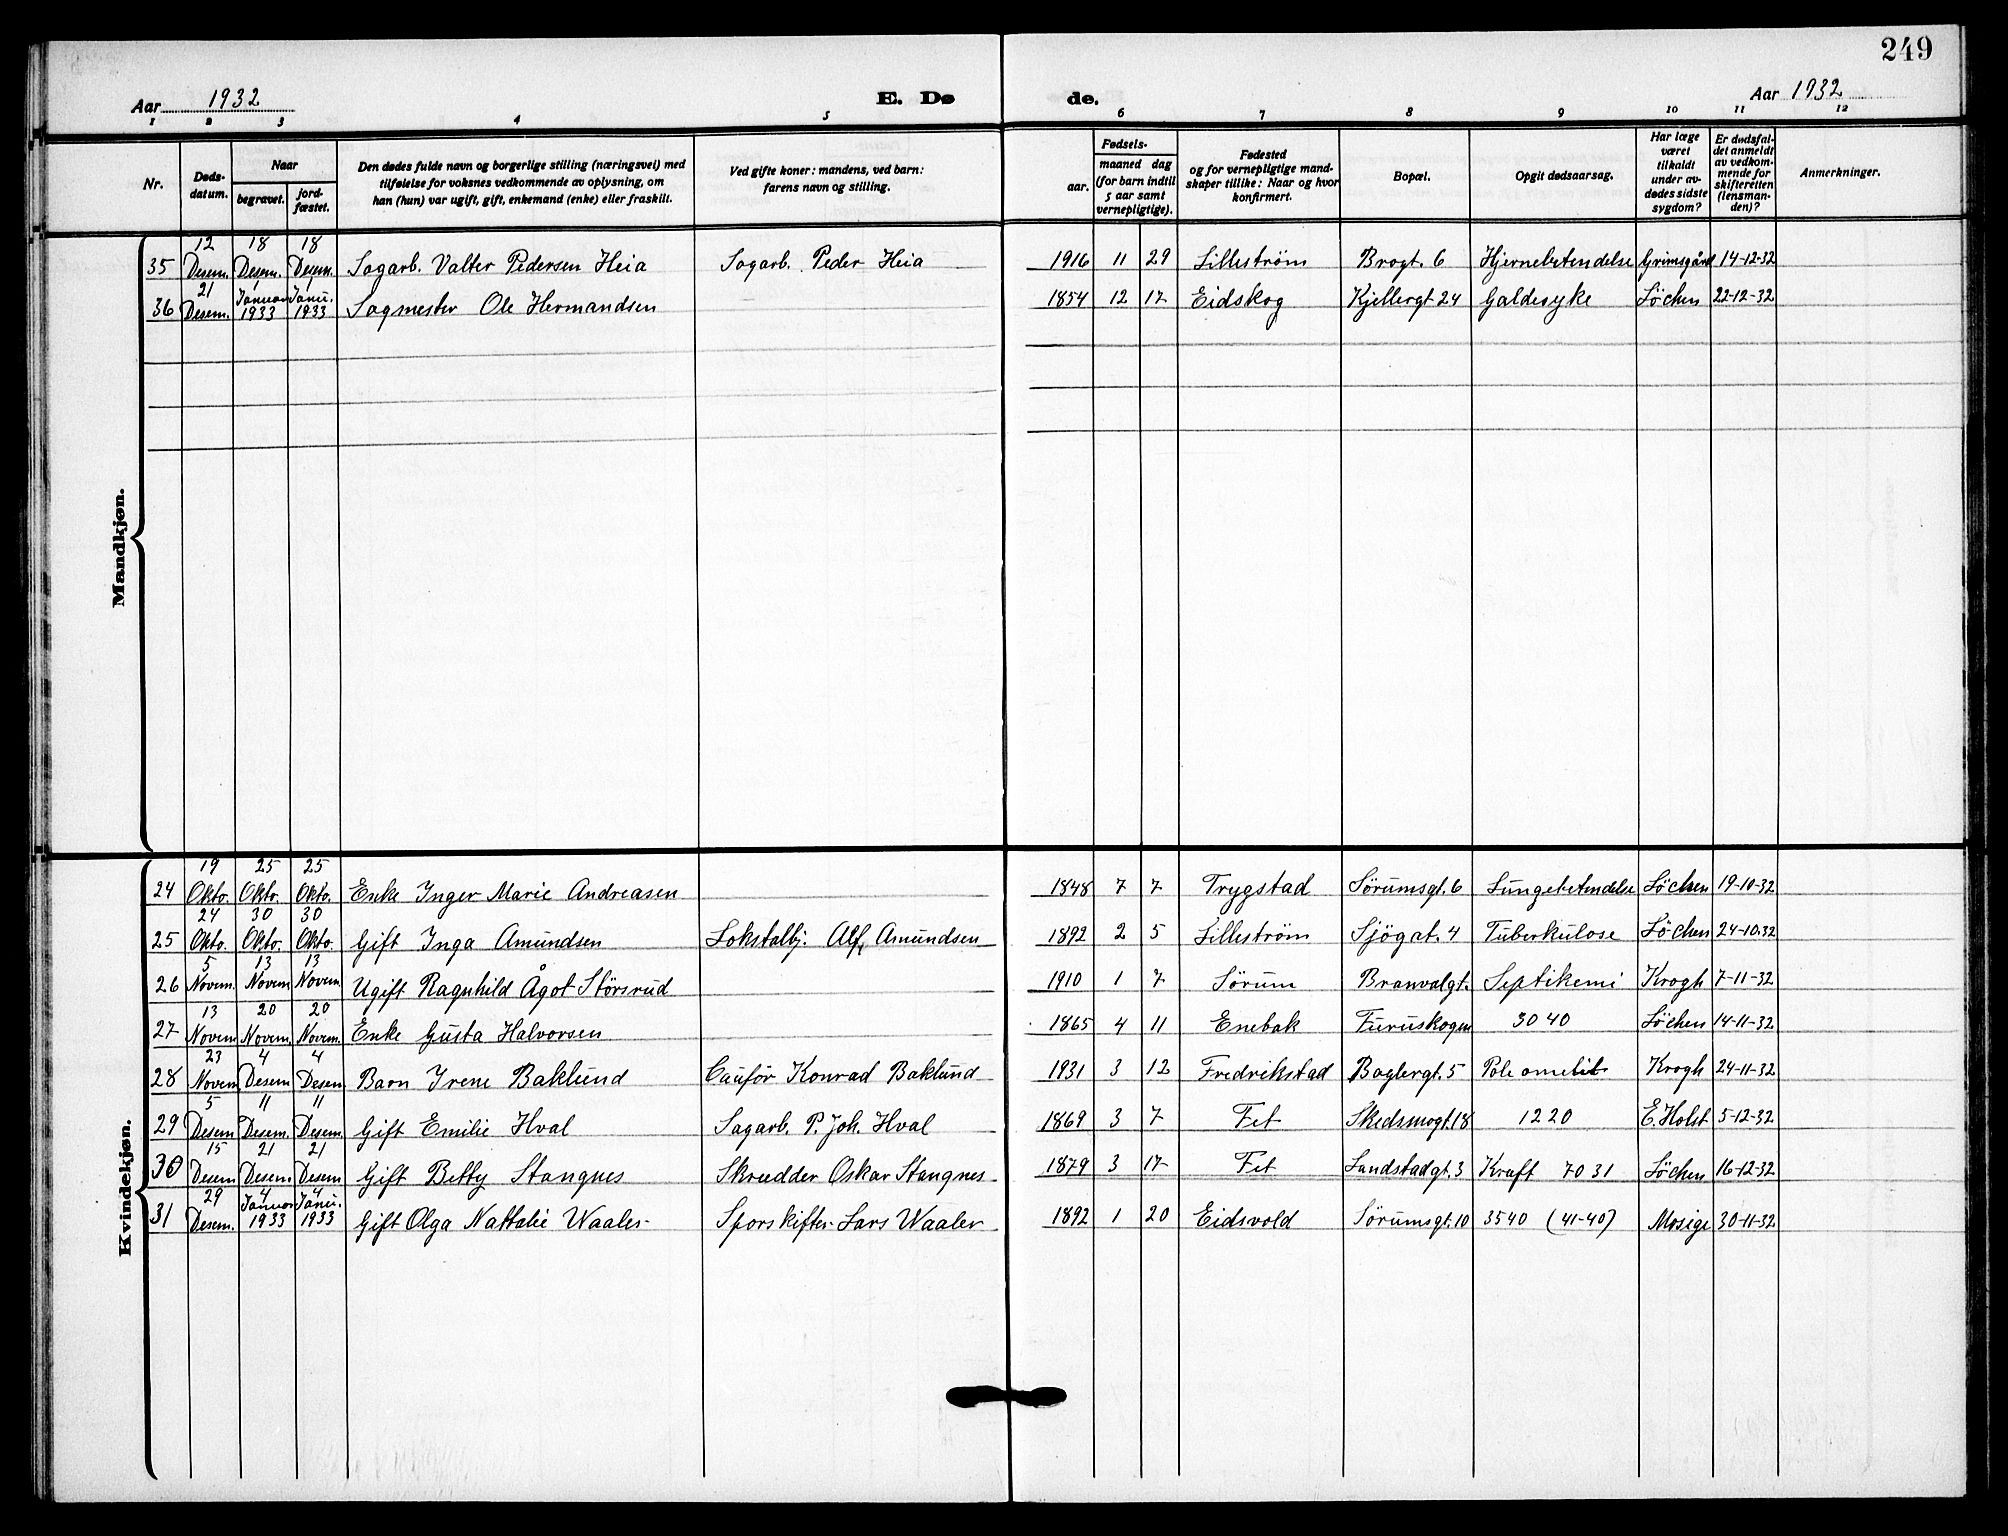 249
Aar 1932 E. Dø de. Aar 1932
1 2 3 4 5 6 7 8 9 10 11 12
Nr.
Døds-
datum.
Naar
begravet.
jord-
fæstet.
Den dødes fulde navn og borgerlige stilling (næringsvei) med
tilføielse for voksnes vedkommende av oplysning, om
han (hun) var ugift, gift, enkemand (enke) eller fraskilt.
Ved gifte koner: mandens, ved barn:
farens navn og stilling.
Fødsels-
aar.
maaned dag
(for barn indtil
5 aar samt
vernepligtige).
Fødested
og for vernepligtige mand-
skaper tillike: Naar og hvor
konfirmert.
Bopæl.
Opgit dødsaarsag.
Har læge
været
tilkaldt
under av-
dødes sidste
sygdom?
Er dødsfal-
det anmeldt
av vedkom-
mende for
skifteretten
(lensman-
den)?
Anmerkninger.
Mandkjøn.
12 18 18
35 Desem. Desem. Desem. Sagarb. Valter Pedersen Heia Sagarb. Peder Heia 1916 11 29 Lilleström Brogt. 6 Hjernebetendelse Grimsgård 14-12-32
21 1 1
36 Desem. Januar 1933 Janu. 1933 Sagmester Ole Hermandsen 1854 12 17 Eidskog Kjellergt 24 Galdesyke Löchen 22-12-32
Kvindekjøn.
19 25 25
24 Okto. Okto. Okto. Enke Inger Marie Andreasen 1848 7 7 Trygstad Sörumsgt. 6 Lungebetendelse Löchen 19-10-32
24 30 30
25 Okto. Okto. Okto. Gift Inga Amundsen Lokstalbj. Alf Amundsen 1892 2 5 Lilleström Sjögat. 4 Tuberkulose Löchen 24-10-32
5 13 13
26 Novem. Novem Novem Ugift Ragnhild Ågot Störsrud 1910 1 7 Sörum Branvalgt. Septikemi Krogh 7-11-32
13 20 20
27 Novem Novem. Novem. Enke Gusta Halvorsen 1865 4 11 Enebak Furuskogen 3040 Löchen 14-11-32
23 4 4
28 Novem Desem Desem Barn Irene Baklund Caufør Konrad Baklund 1931 3 12 Fredrikstad Baglergt. 5 Krogh 24-11-32
5 11 11
29 Desem Desem. Desem. Gift Emilie Hval Sagarb. P. Joh. Hval 1869 3 7 Fet Skedsmogt. 18 1220 E. Holst 5-12-32
15 21 21
30 Desem Desem Desem Gift Betty Stangnes Skredder Oskar Stangnes 1879 3 17 Fet Landstadgt. 3 Kraft 7031 Löchen 16-12-32
29 4 4
31 Desem. Januar 1933 Janu. 1933 Gift Olga Nattalie Waaler Sporskifter Lars Waaler 1892 1 20 Eidsvold Sörumsgt. 10 3540 (41-40) Mosige 30-11-32